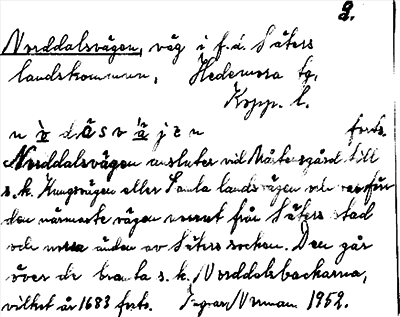 2.
Norddalsvägen, väg i f.d. Säters
landskommun, Hedemora tg,
Kopp. l.
n ò d å s v ä j e n forts.
Norddalsvägen ansluter vid Mårtensgård till
s.k. Kungsvägen eller Gamla landsvägen och var förr
den närmaste vägen norrut från Säters stad
och norra änden av Säters socken. Den går
över de branta s.k. Norddalsbackarna,
vilket år 1683 forts. 1952.